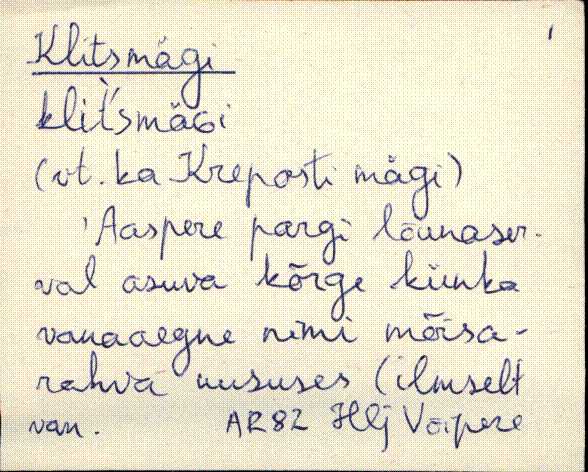 Klitsmägi
klit's̀mäGi
(vt. ka Kreposti mägi)
'Aaspere pargi lõunaser-
val asuva kõrge künka
vanaaegne nimi mõisa-
rahva uususes (ilmselt
van. AR82 Hlj Voipere